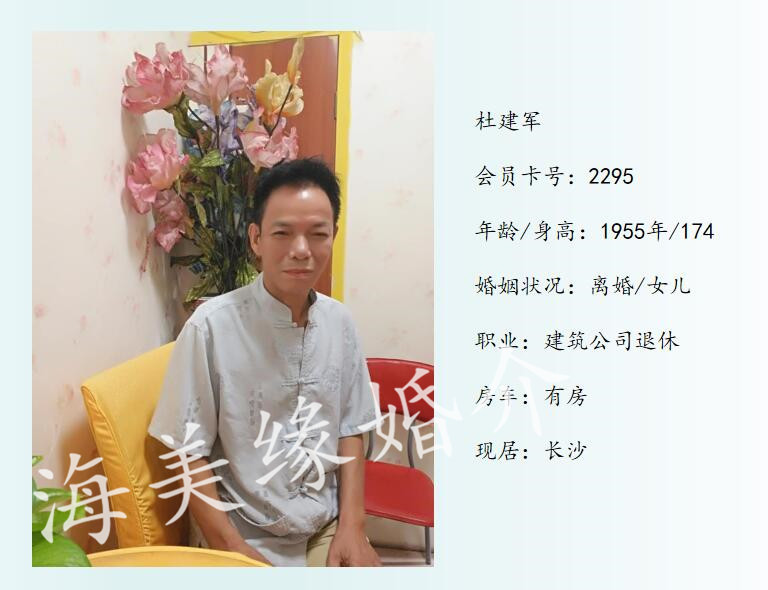 杜建军
会员卡号：2295
年龄/身高：1955年/174
婚姻状况：离婚/女儿
职业：建筑公司退休
房车：有房
现居：长沙
海美缘婚介